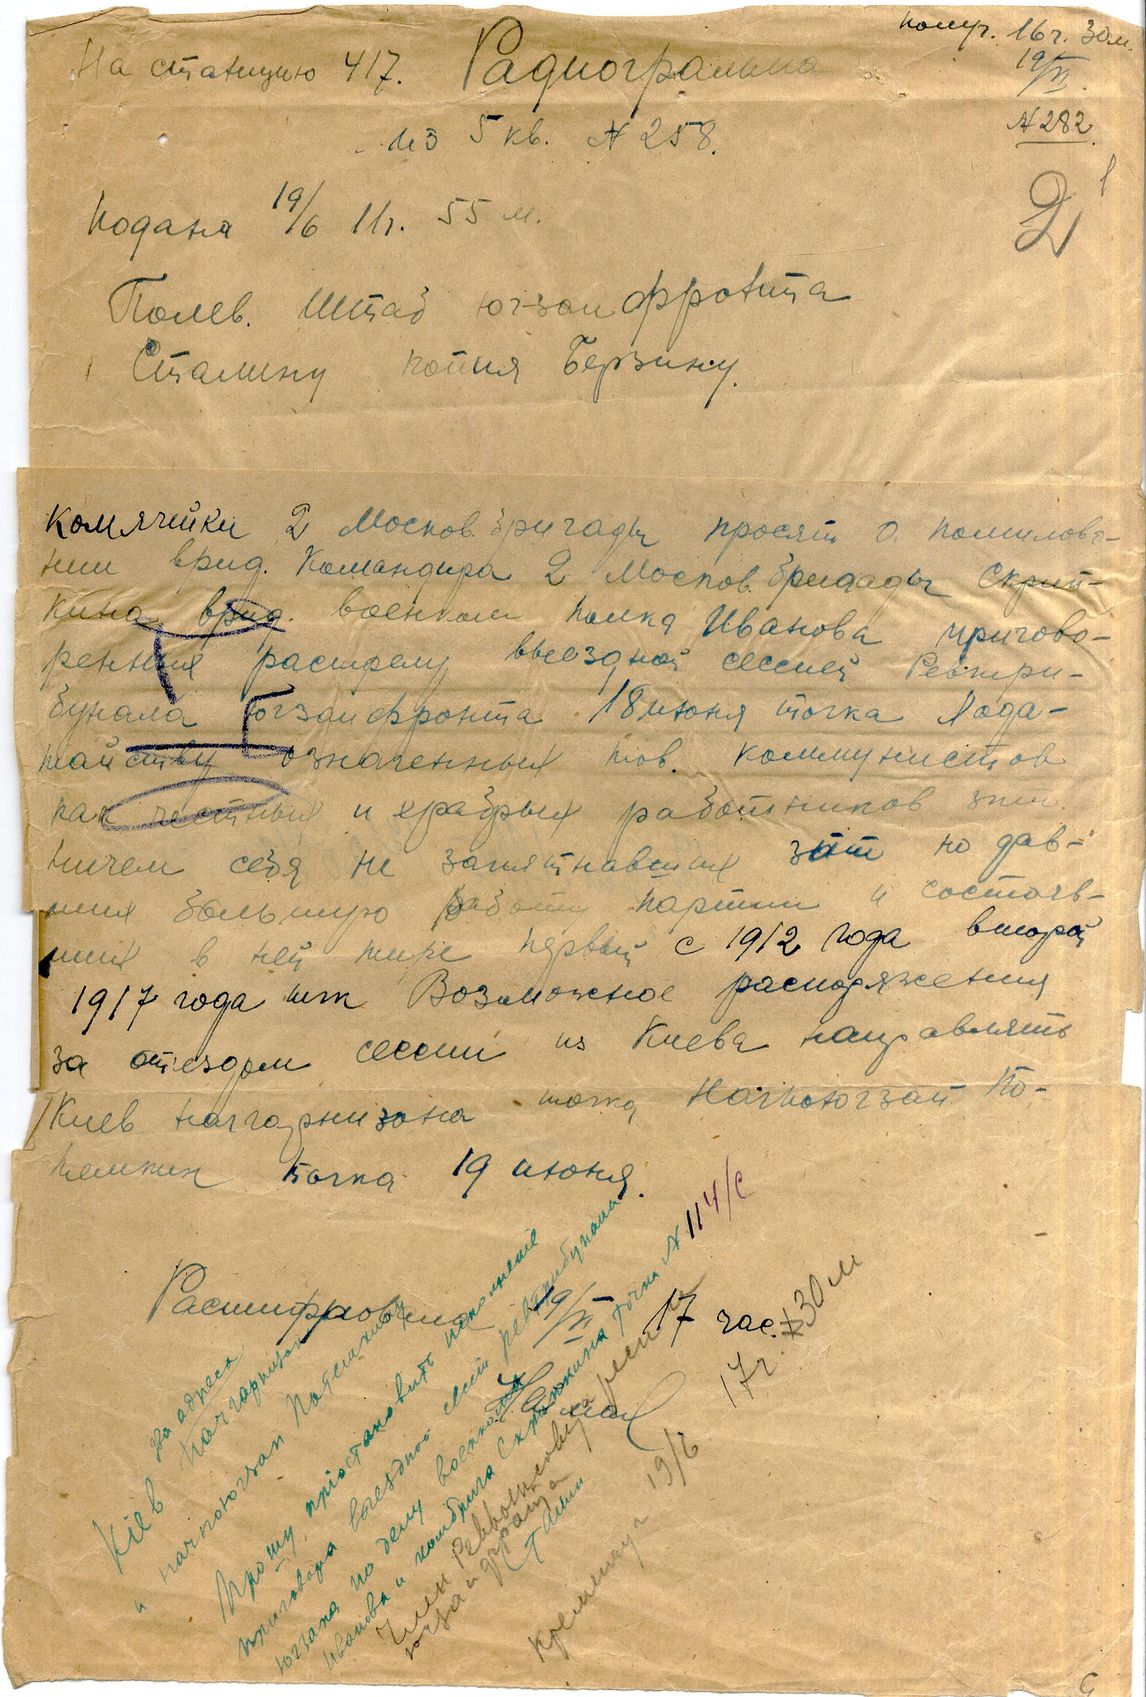 получ. 16 ч. 30 м.
19/VI
На станцию 417. Радиограмма
№ 282
из 5 кв. № 258.
2
Подана 19/6 11 ч. 55 м.
Полев. Штаб югзапфронта
Сталину копия Берзину.
Комячейки 2 Москов. бригады просят о помилова-
нии врид. Командира 2 Москов. бригады Скрип-
кина врид. военком полка Иванова пригово-
ренных расстрелу выездной сессией Ревтри-
бунала Югзапфронта 18 июня точка Хода-
тайству означенных тов. коммунистов
как честных и храбрых работников зпт
ничем себя не запятнавших зпт но дав-
ших большую работу партии и состояв-
ших в ней тире первый с 1912 года второй
1917 года тчк Возможное распоряжения
за отездом сессии из Киева направлять
Киев начгарнизона точка Начпоюгзап По-
темкин точка 19 июня.
Расшифрована 19/VI 17 час.
17 ч. 30 м
Киев два адреса
Начгарнизона
и начпоюгзап Потемкину
Прошу пріостановить исполнение
приговора выездной сессии ревтрибунала
югзапа по делу военкома
Иванова и комбрига Скрипкина точка № 114/с
Член Реввоенсовета
югзапфронта
Сталин
Кременчуг 19/6